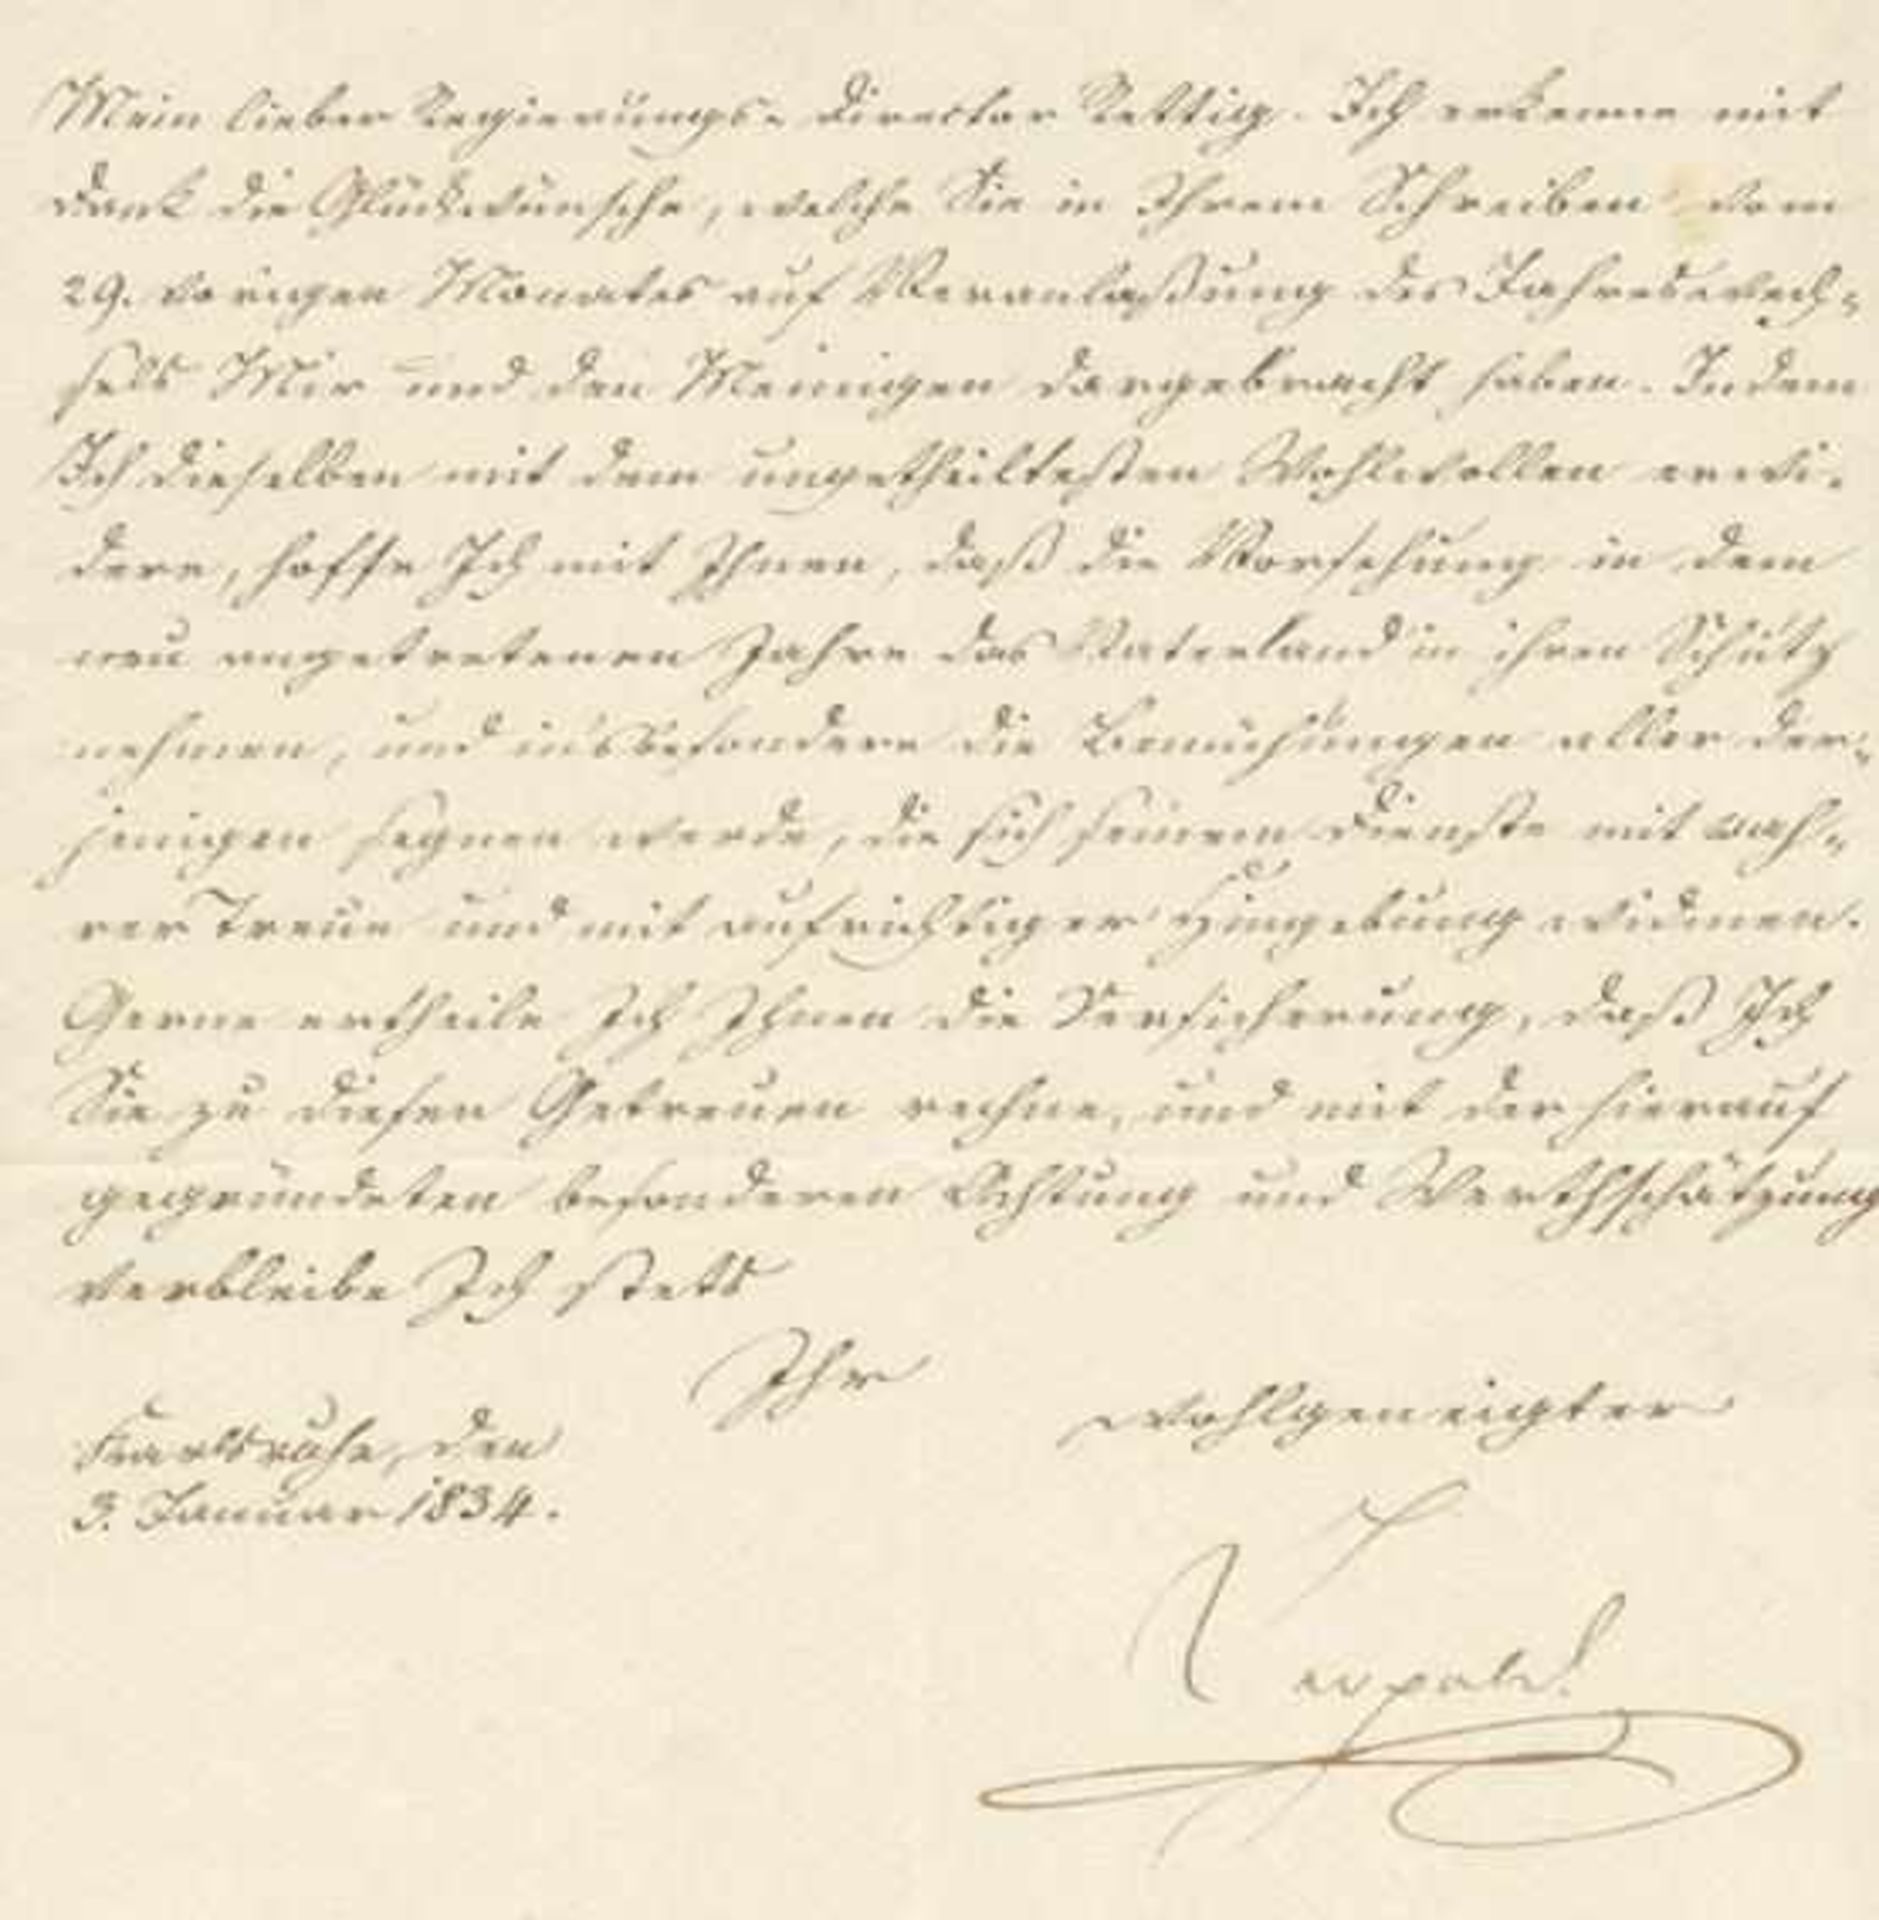 Mein lieber Regierungs-Director Rettig. Ich erkenne mit
Dank die Glückwünsche, welche Sie in Ihrem Schreiben vom
29. vorigen Monates auf Veranlaßung des Jahreswech-
sels Mir und den Meinigen dargebracht haben. Indem
Ich dieselben mit dem ungetheiltesten Wohlwollen erwi-
dere, hoffe Ich mit Ihnen, daß die Vorsehung in dem
neu angetretenen Jahre das Vaterland in ihren Schutz
nehmen, und insbesondere die Bemühungen aller der-
jenigen segnen werde, die sich seinem Dienste mit wah-
rer Treue und mit aufrichtiger Hingebung widmen.
Gerne ertheile Ich Ihnen die Versicherung, daß Ich
Sie zu diesen Getreuen rechne, und mit der hierauf
gegründeten besonderen Achtung und Werthschätzung
verbleibe Ich stets
Ihr
wohlgeneigter
Karlsruhe, den
3. Januar 1834.
Leopold